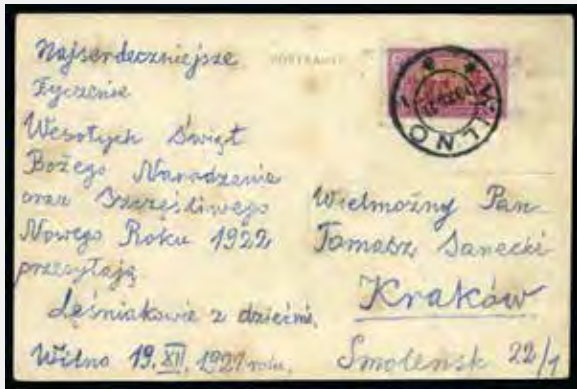 Najserdeczniejsze
Życzenie
Wesołych Świąt
Bożego Narodzenie
oraz Szczęśliwego
Nowego Roku 1922
przesyłają
Leśniakowie z dziećmi.
Wilno 19.XII.1921 roku.
POSTKARTE
WILNO
Wielmożny Pan
Tomasz Sanecki
Kraków
Smoleńsk 22/1